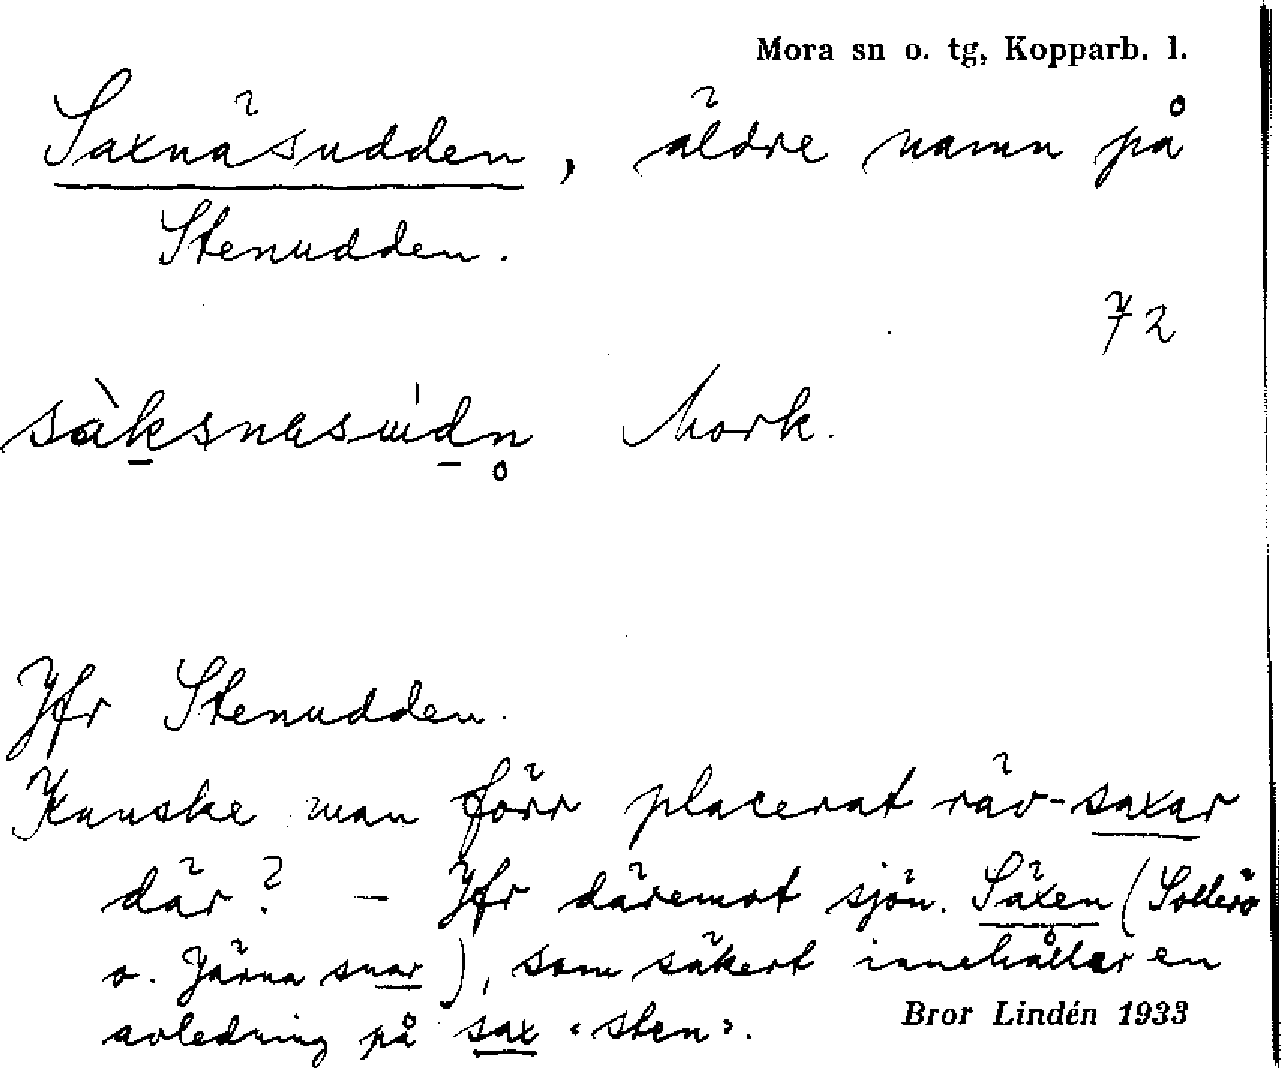 Mora sn o. tg, Kopparb. l.
Saxnäsudden, äldre namn på
Stenudden.
72
Mork.
Jfr Stenudden.
Kanske man förr placerat räv-saxar
där? – Jfr däremot sjön. Säxen (Sollerö
o. Järna snar), som säkert innehåller en
avledning på sax "sten".
Bror Lindén 1933